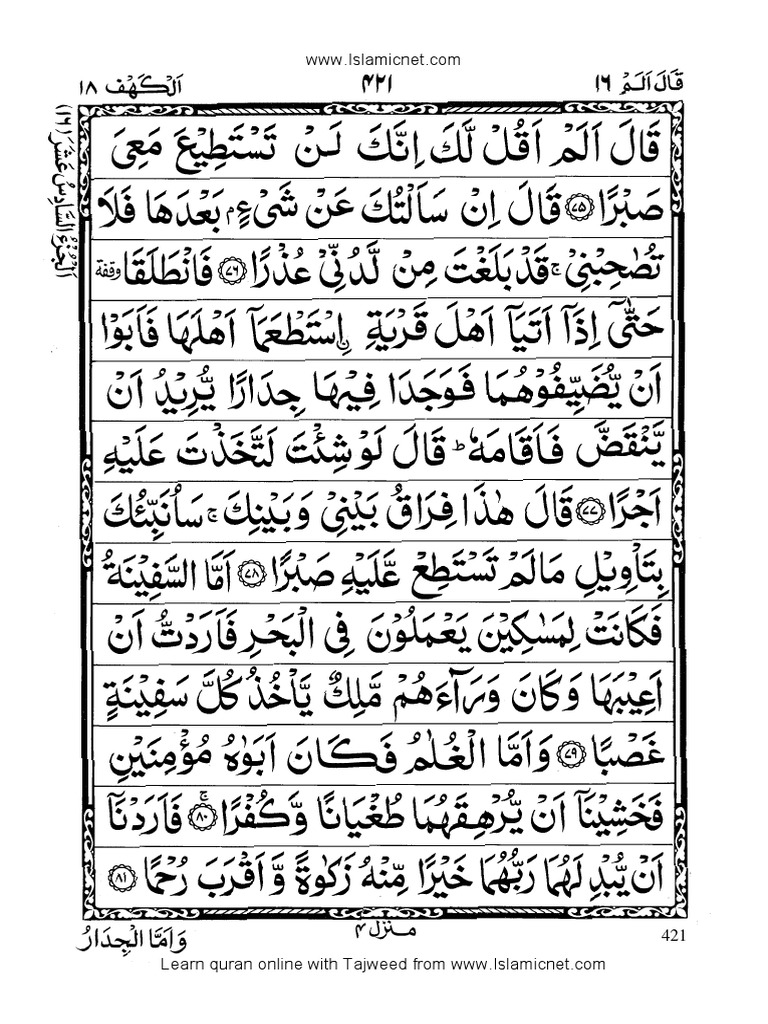 www.Islamicnet.com
قَالَ اَلَمْ ١٦
۴۲۱
اَلْكَهْف ١٨
اَلْجُزْءُ السَّادِسُ عَشَرَ (١٦)
قَالَ اَلَمْ اَقُلْ لَّكَ اِنَّكَ لَنْ تَسْتَطِيْعَ مَعِىَ
صَبْرًا ﴿۷۵﴾ قَالَ اِنْ سَاَلْتُكَ عَنْ شَىْءٍۭ بَعْدَهَا فَلَا
تُصٰحِبْنِىْ ۚ قَدْ بَلَغْتَ مِنْ لَّدُنِّىْ عُذْرًا ﴿۷۶﴾ فَانْطَلَقَا وقفة
حَتّٰۤى اِذَاۤ اَتَيَاۤ اَهْلَ قَرْيَةِ ۟اِسْتَطْعَمَاۤ اَهْلَهَا فَاَبَوْا
اَنْ يُّضَيِّفُوْهُمَا فَوَجَدَا فِيْهَا جِدَارًا يُّرِيْدُ اَنْ
يَّنْقَضَّ فَاَقَامَهٗ ؕ قَالَ لَوْ شِئْتَ لَتَّخَذْتَ عَلَيْهِ
اَجْرًا ﴿۷۷﴾ قَالَ هٰذَا فِرَاقُ بَيْنِىْ وَبَيْنِكَ ۚ سَاُنَبِّئُكَ
بِتَاْوِيْلِ مَا لَمْ تَسْتَطِعْ عَّلَيْهِ صَبْرًا ﴿۷۸﴾ اَمَّا السَّفِيْنَةُ
فَكَانَتْ لِمَسٰكِيْنَ يَعْمَلُوْنَ فِى الْبَحْرِ فَاَرَدْتُّ اَنْ
اَعِيْبَهَا وَكَانَ وَرَآءَهُمْ مَّلِكٌ يَّاْخُذُ كُلَّ سَفِيْنَةٍ
غَصْبًا ﴿۷۹﴾ وَاَمَّا الْغُلٰمُ فَكَانَ اَبَوٰهُ مُؤْمِنَيْنِ
فَخَشِيْنَاۤ اَنْ يُّرْهِقَهُمَا طُغْيَانًا وَّكُفْرًا ۚ ﴿۸۰﴾ فَاَرَدْنَاۤ
اَنْ يُّبْدِلَهُمَا رَبُّهُمَا خَيْرًا مِّنْهُ زَكٰوةً وَّاَقْرَبَ رُحْمًا ﴿۸۱﴾
منزل ۴
وَاَمَّا الْجِدَارُ
421
Learn quran online with Tajweed from www.Islamicnet.com